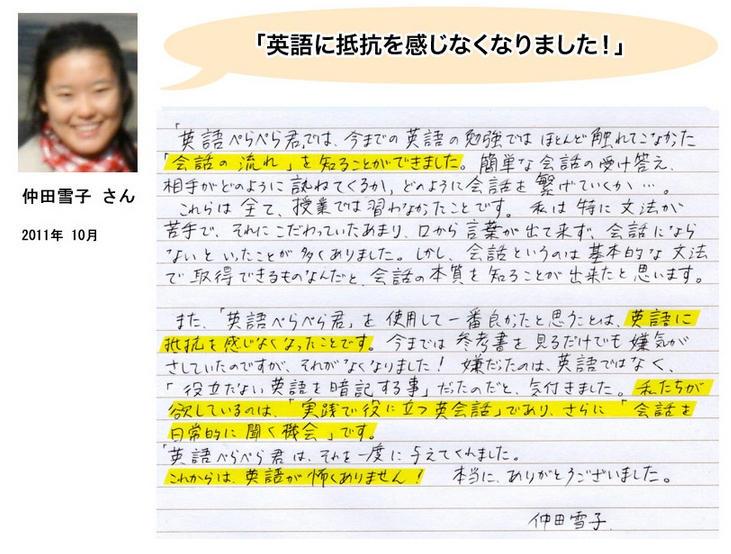 「英語に抵抗を感じなくなりました！」
仲田雪子 さん
2011年 10月
「英語ぺらぺら君」では、今までの英語の勉強では ほとんど触れてこなかった
「会話の流れ」を知ることができました。簡単な会話の受け答え、
相手がどのように訊ねてくるか、どのように会話を繋げていくか…。
これらは全て、授業では習わなかったことです。 私は特に文法が
苦手で、それにこだわっていたあまり、口から言葉が出て来ず、会話になら
ないといったことが多くありました。しかし、会話というのは基本的な文法
で取得できるものなんだと、会話の本質を知ることが出来たと思います。
また、「英語ぺらぺら君」を使用して一番良かったと思うことは、英語に
抵抗を感じなくなったことです。今までは参考書を見るだけでも嫌気が
さしていたのですが、それがなくなりました！ 嫌だったのは、英語ではなく、
「役立たない英語を暗記する事」だったのだと、気付きました。私たちが
欲しているのは、「実践で役に立つ英会話」であり、さらに「会話を
日常的に聞く機会」です。
「英語ぺらぺら君は、それを一度に与えてくれました。
これからは、英語が怖くありません！ 本当に、ありがとうございました。
仲田雪子